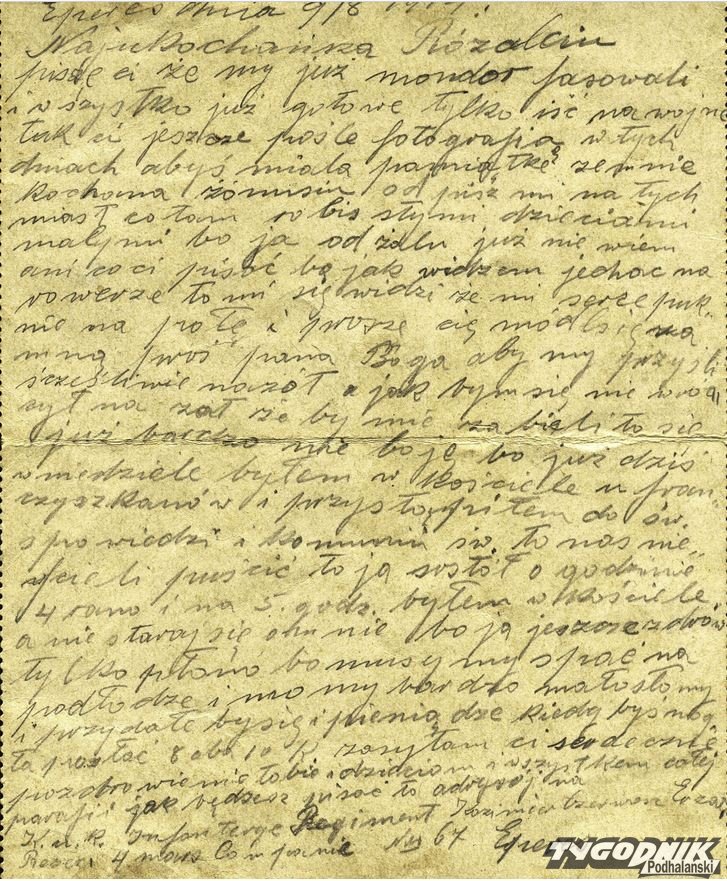 Eperes dnia 9/8 1914.
Najukochańsza Rózalciu
piszę ci że my już mondor fasowali
i wszystko już gotowe tylko iść na wojnę
tuk ci jeszcze pośle fotografią w tych
dniach abyś miała pamiątkę zemnie
kochana żonusiu odpisz mi na tych
miast co tam robis stymi dzieciami
małymi bo ja od żalu już nie wiem
ani co ci pisać bo jak widzem jechać na
rowerze to mi się widzi ze mi serce puk
nie na połę i proszę cię módl się za
mną proś pana Boga aby my przyśli
scześliwie nazół a jak bym się nie wró
cył na zał że by mie zabieli to się
już bardzo nie boję bo już dziś
w niedziele byłem w kościele u fran
czyszkanów i przystąpiłem do św.
spowiedzi i komunii św. to nas nie
fcieli puścić to ja sostół o godzinie
4 rano i na 5. godz. byłem w kościele
a nie staraj się omnie bo ja jeszcze zdrów
tylko płono bo musy my spać na
podłodze i momy bardzo mało słomy
i przydałe by się i pieniądze kiedy byś mog
ła posłać 8 abo 10 K zasyłam ci serdecznie
pozdrowienie tobie i dzieciom i wszystkem całej
parafii i jak będziesz pisać to adresuj na
K. u. K. Infanterge Regiment Kazimierz Czerwien
4 mars Companie No 67 Eper
TYGODNIK
Podhalański